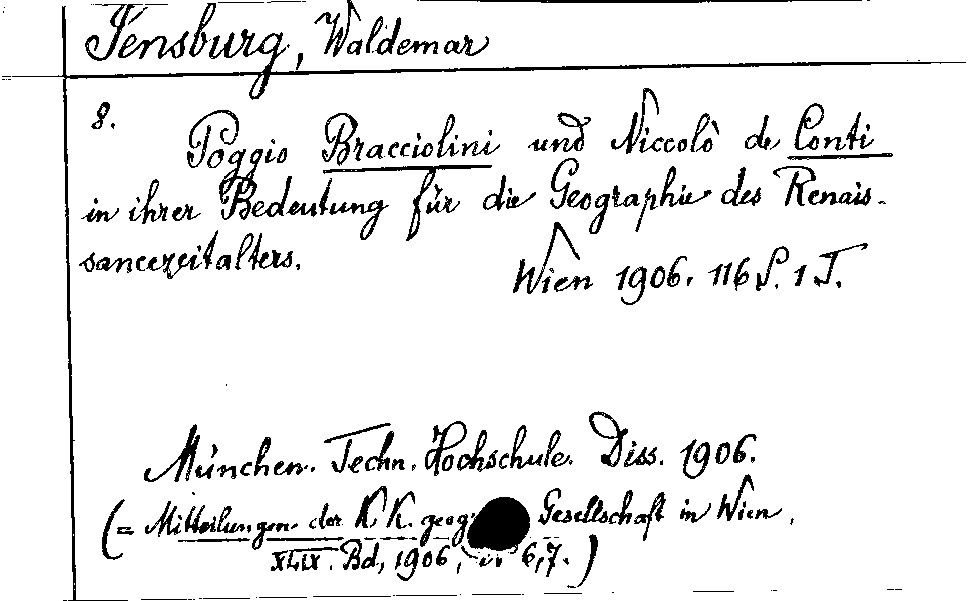 Sensburg, Waldemar
8.
Poggio Bracciolini und Niccolò de Conti
in ihrer Bedeutung für die Geographie des Renais-
sancezeitalters.
Wien 1906. 116 S. 1 T.
München. Techn. Hochschule. Diss. 1906.
(= Mitteilungen der K. K. geog Gesellschaft in Wien,
XLIX. Bd, 1906, 6,7.)